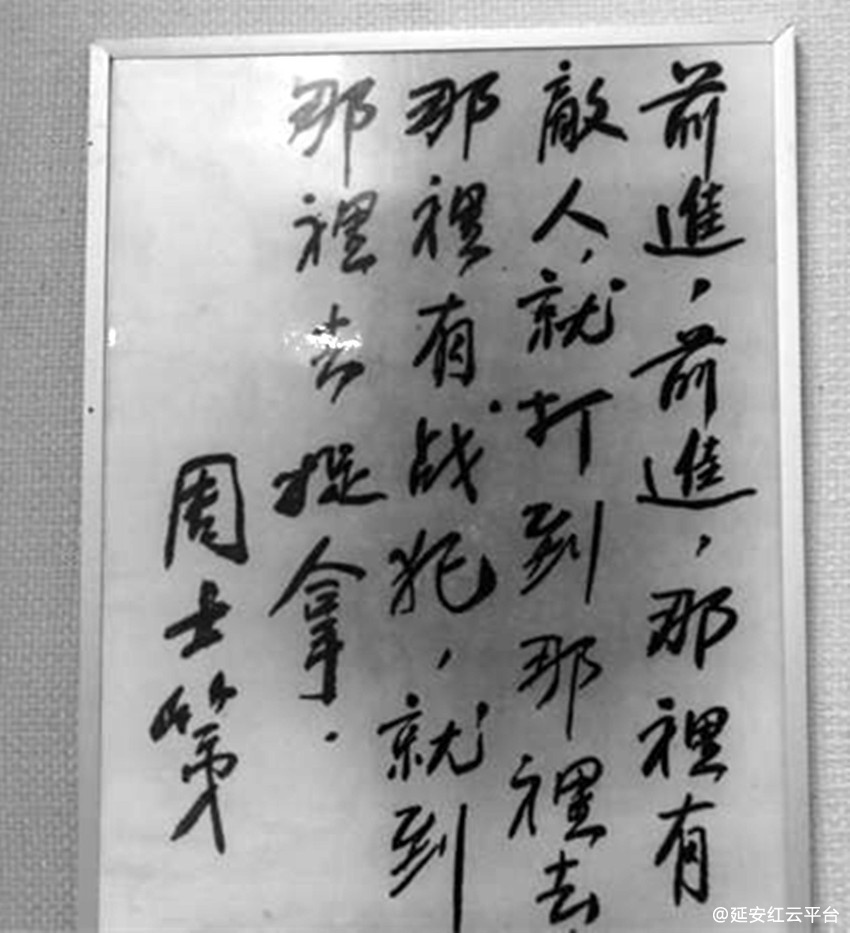 前進，前進，那裡有
敵人，就打到那裡去
那裡有战犯，就到
那裡去捉拿．
周士第
@延安红云平台